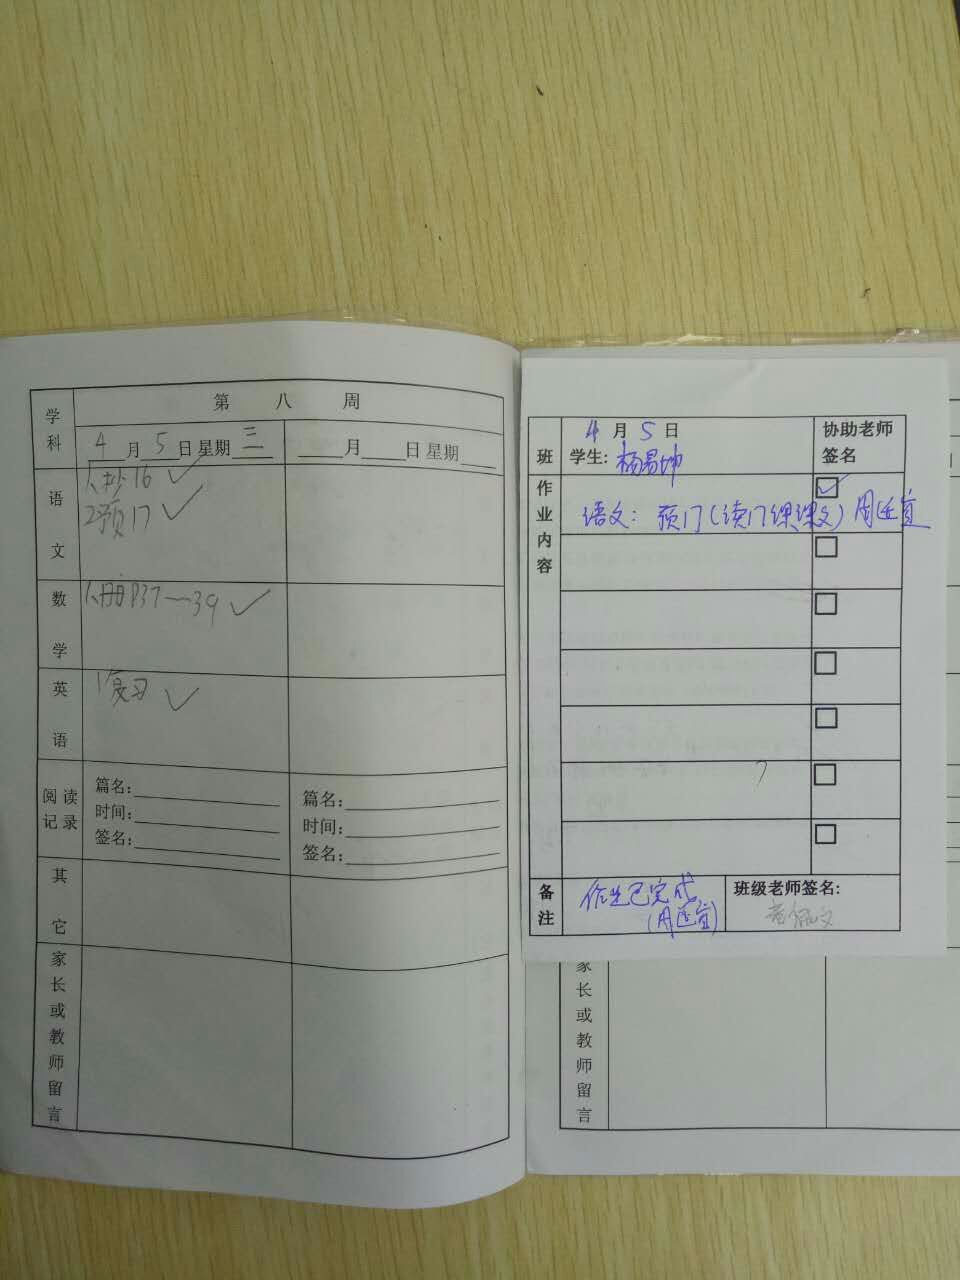 学科
第 八 周
4月5日 星期三
月 日 星期
语文
1、抄16
2、预17
数学
1、册P37—39
英语
1、复习
阅读记录
篇名:
时间:
签名:
篇名:
时间:
签名:
其它
家长或教师留言
班
4月5日
学生: 杨易坤
协助老师签名
作业内容
语文: 预17(读17课课文)
备注
作业已完成
班级老师签名:
家长或教师留言